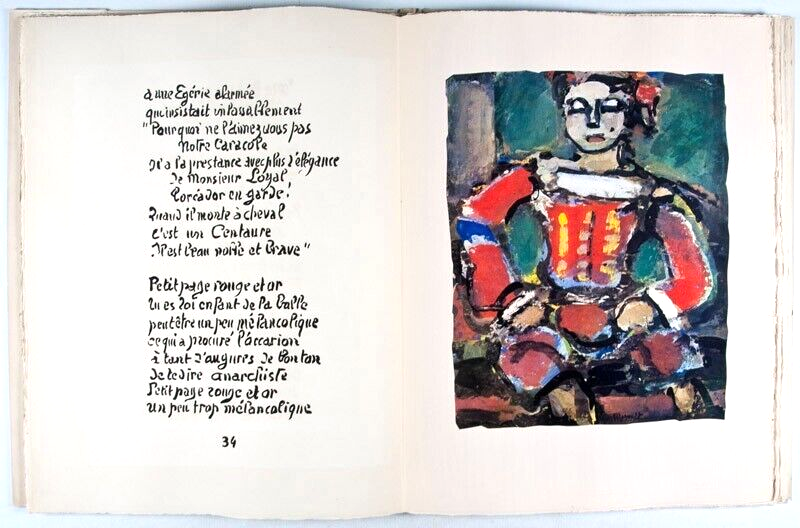 à une Egérie alarmée
qui insistait inlassablement
"Pourquoi ne l'aimez vous pas
notre Caracole
Il a la prestance avec plus d'élégance
de Monsieur Loyal
Toréador en garde!
Quand il monte à cheval
c'est un Centaure
Il est beau noble et brave"
Petit page rouge et or
tu es toi enfant de la balle
peut être un peu mélancolique
ce qui a procuré l'occasion
à tant d'augures de bon ton
de te dire anarchiste
Petit page rouge et or
un peu trop mélancolique
34